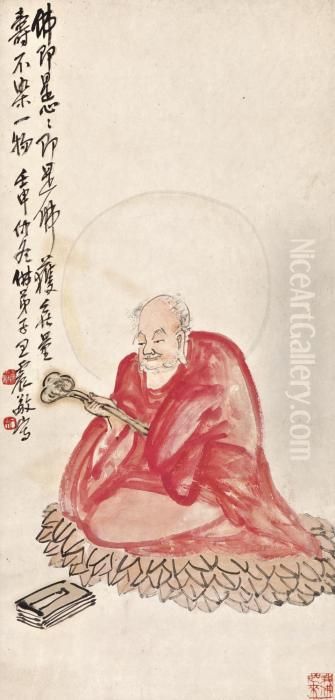 佛即是心心即是佛獲無量
壽不染一物 壬申仲冬佛弟子王震敬寫
NiceArtGallery.com